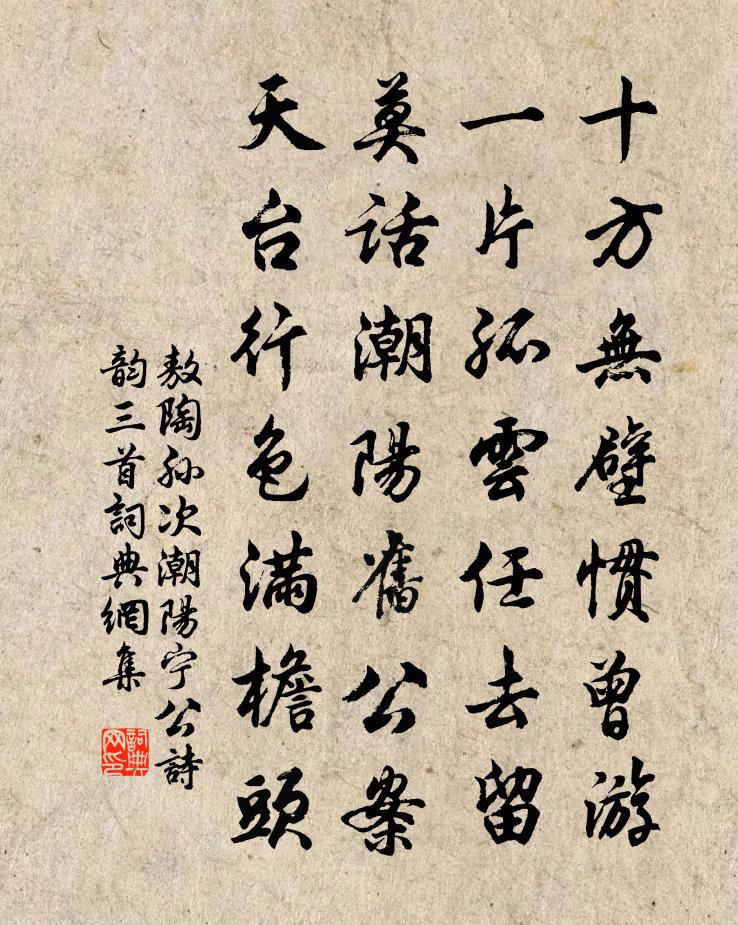 十方無壁慣曾游
一片孤雲任去留
莫話潮陽舊公案
天台行色滿檐頭
敖陶孙次潮陽宁公詩
韵三首詞典網集
詞典網印